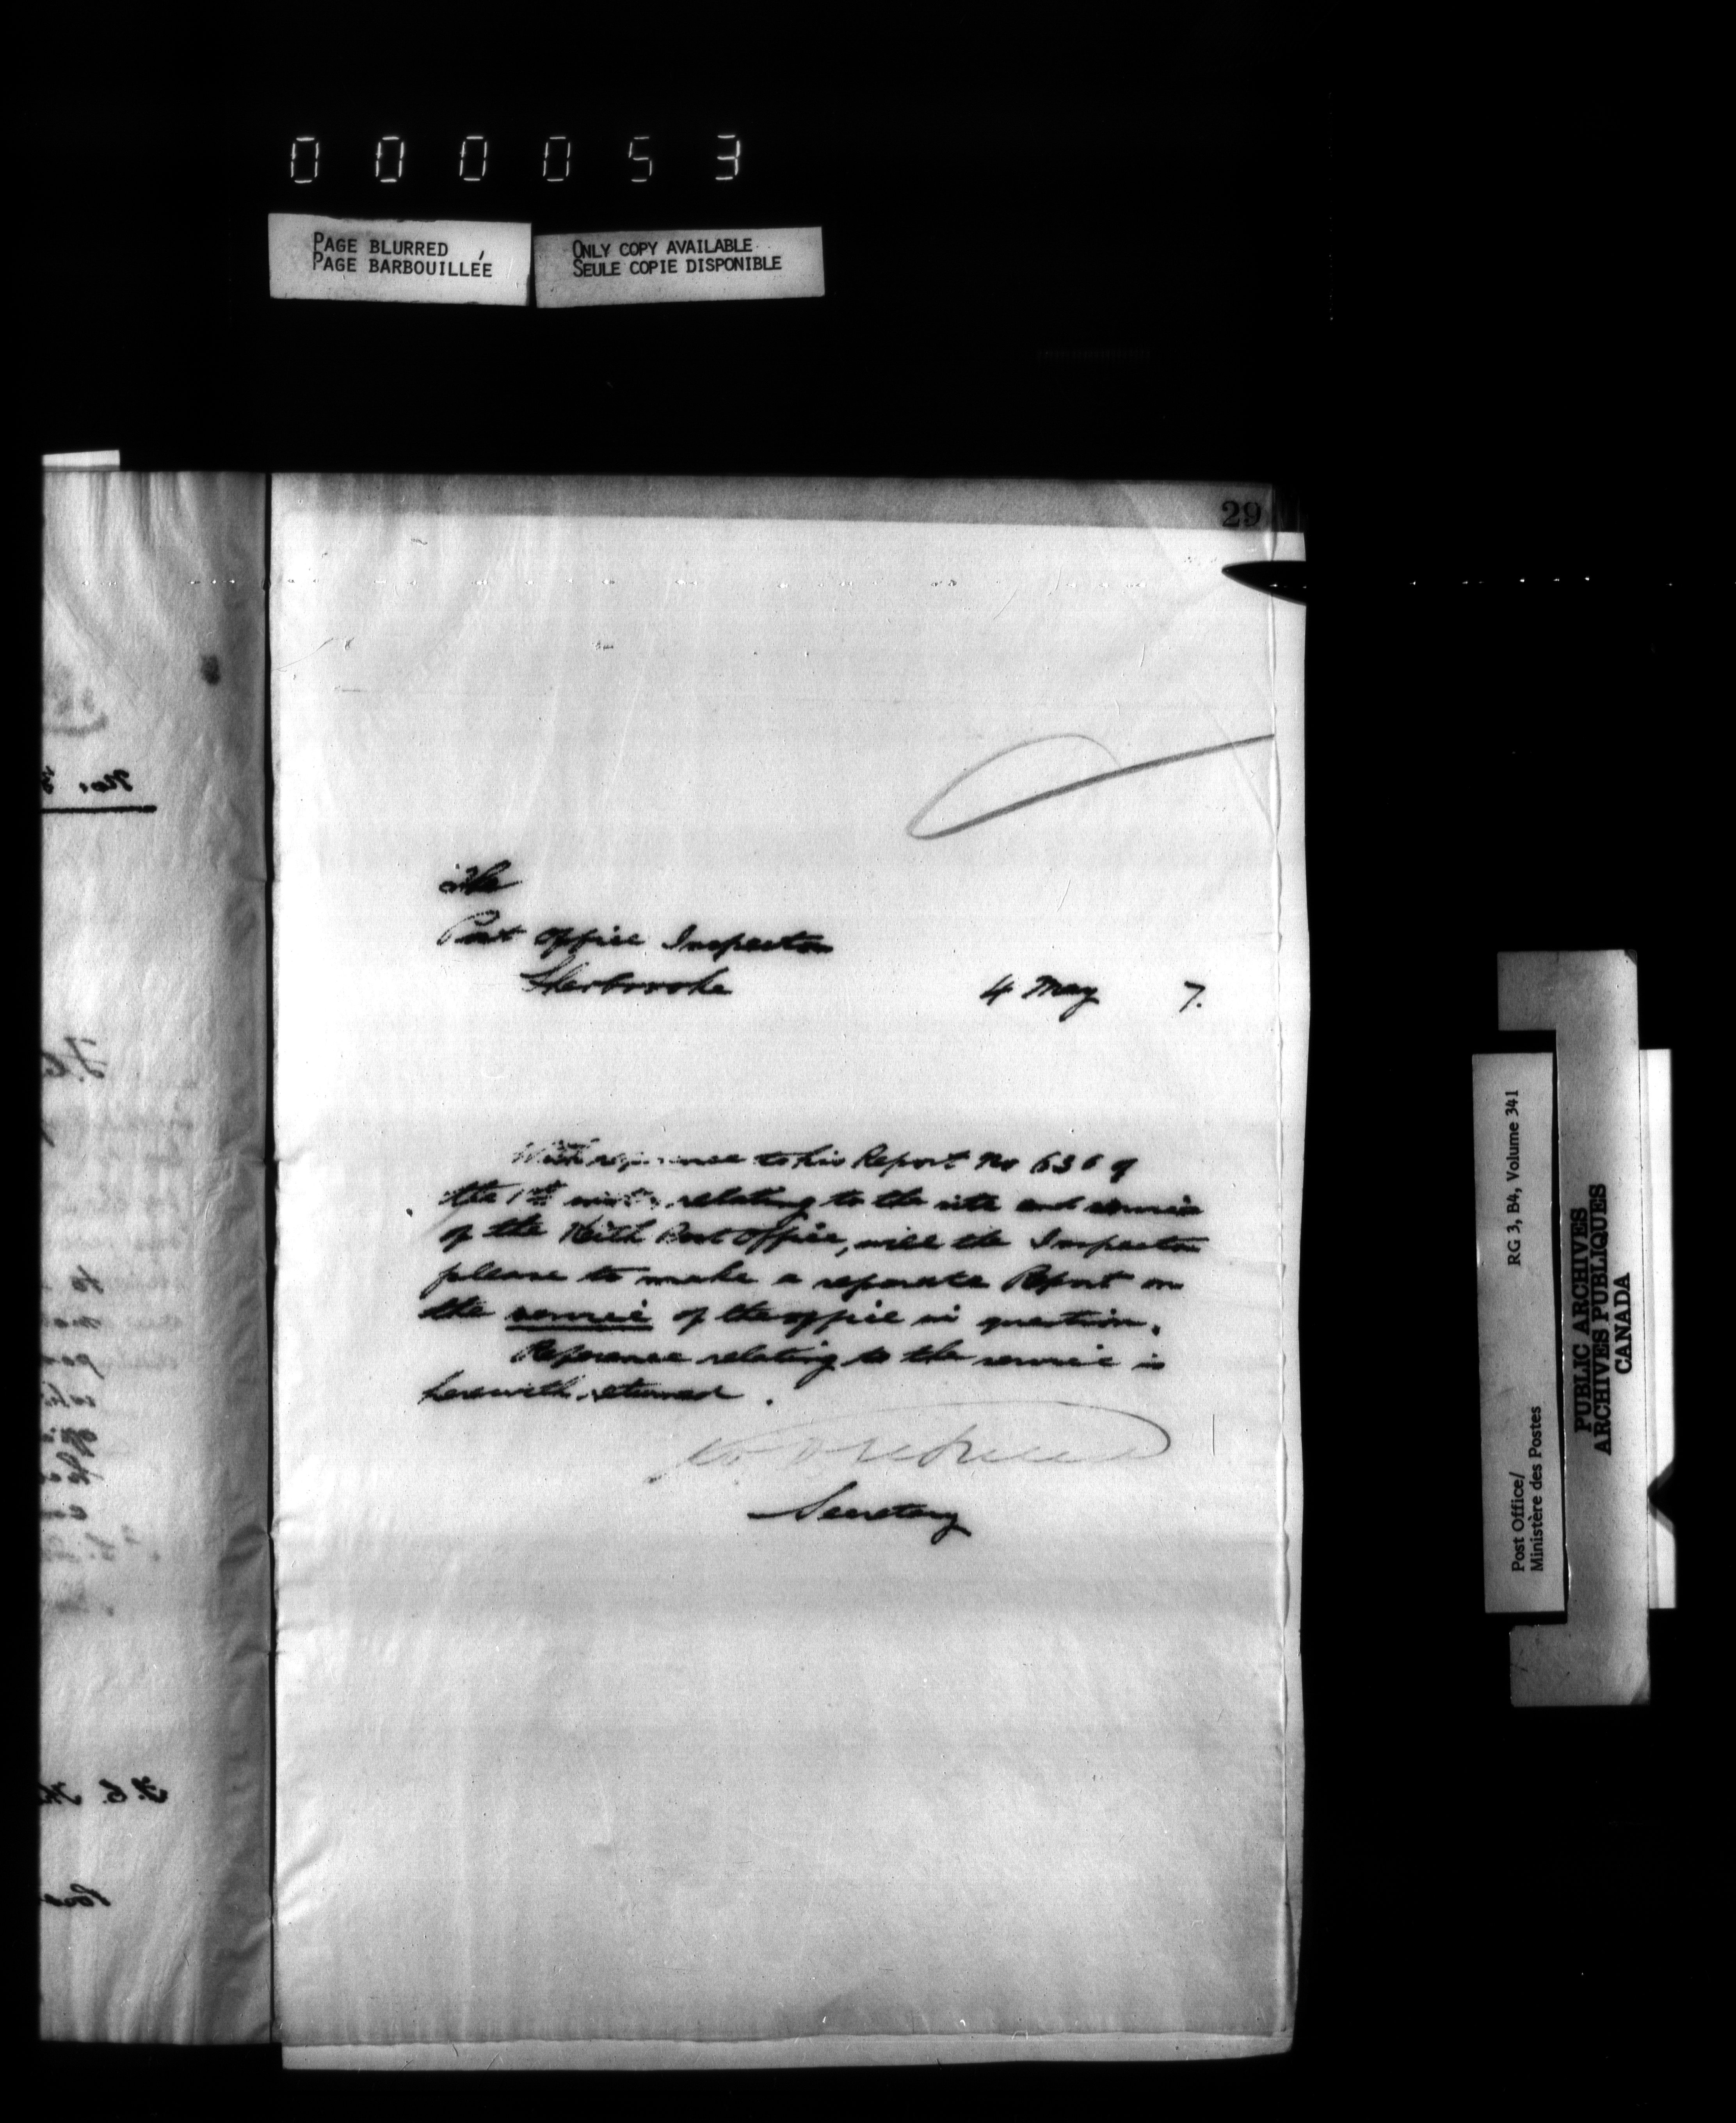 000053
PAGE BLURRED
PAGE BARBOUILLÉE
ONLY COPY AVAILABLE
SEULE COPIE DISPONIBLE
29
The
Post Office Inspector
Sherbrooke
4 May 7.
With reference to his Report No 636 of
the 1st inst., relating to the site and service
of the Keith Post Office, will the Inspector
please to make a separate Report on
the service of the office in question.
Reference relating to the service is
herewith returned.
Secretary
Post Office/
Ministère des Postes
RG 3, B4, Volume 341
PUBLIC ARCHIVES
ARCHIVES PUBLIQUES
CANADA